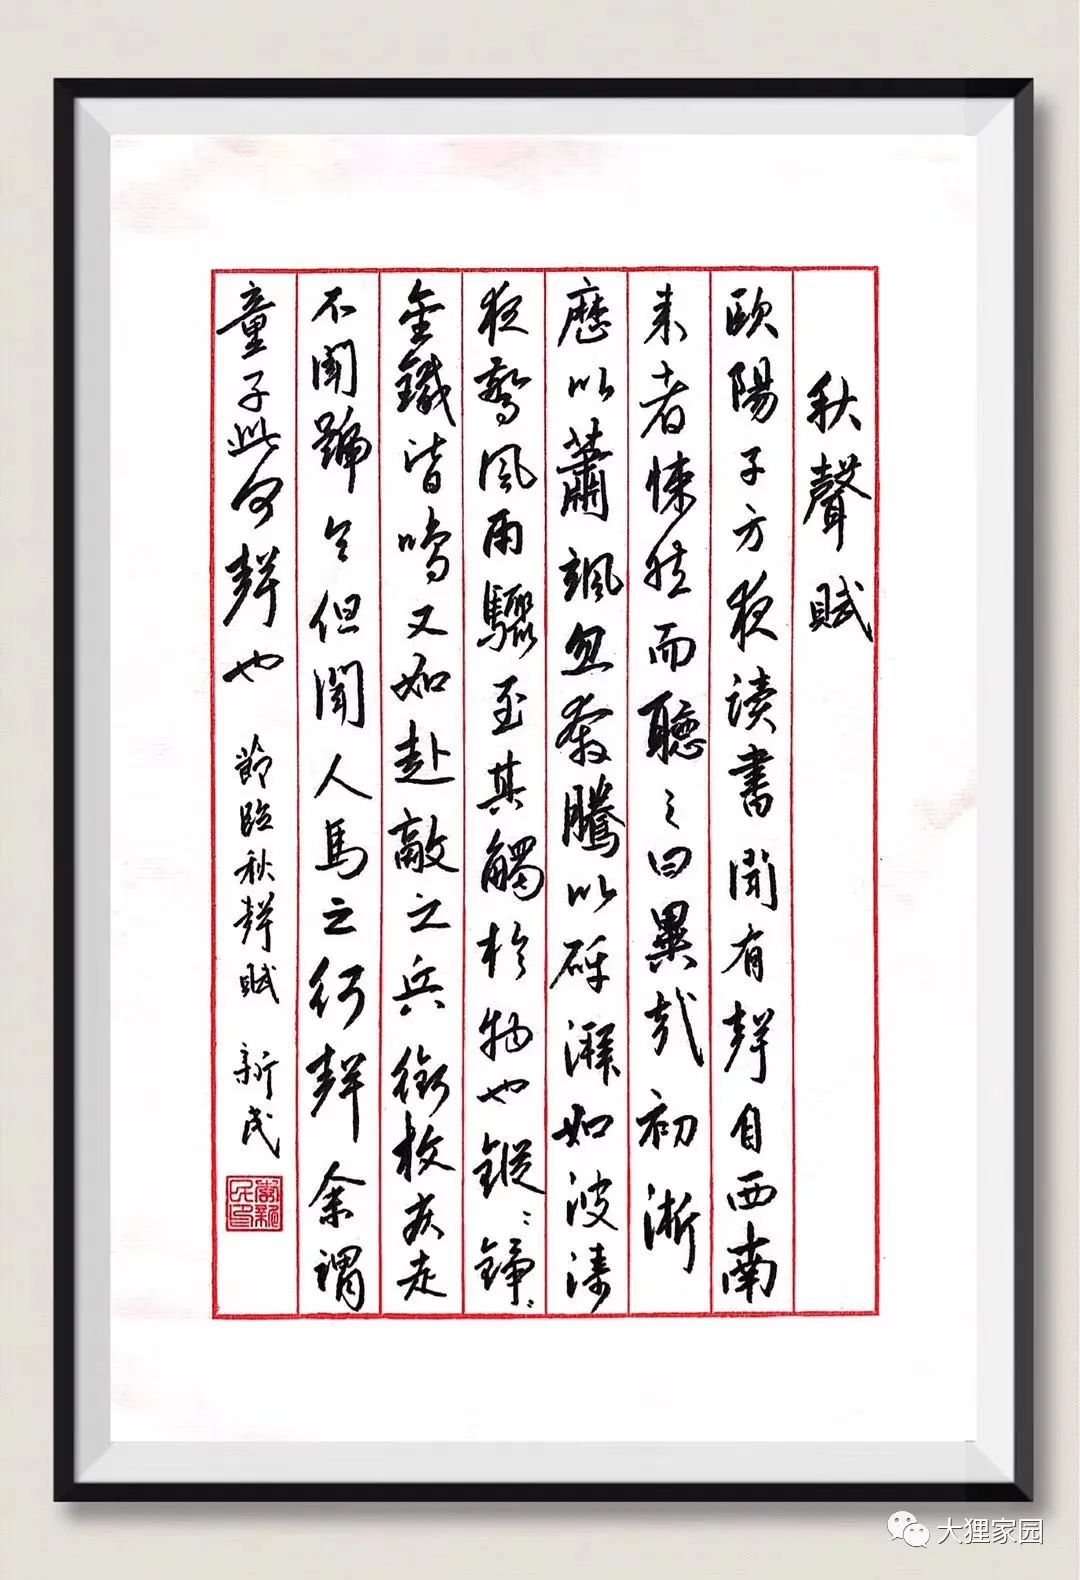 秋聲賦
歐陽子方夜讀書聞有聲自西南
来者悚然而聽之曰異哉初淅
歷以蕭颯忽奔騰以砰湃如波濤
夜驚風雨驟至其觸於物也鏦〻錚〻
金鐵皆鳴又如赴敵之兵銜枚疾走
不聞號令但聞人馬之行聲余謂
童子此何聲也 節臨秋聲賦 新民
大狸家园